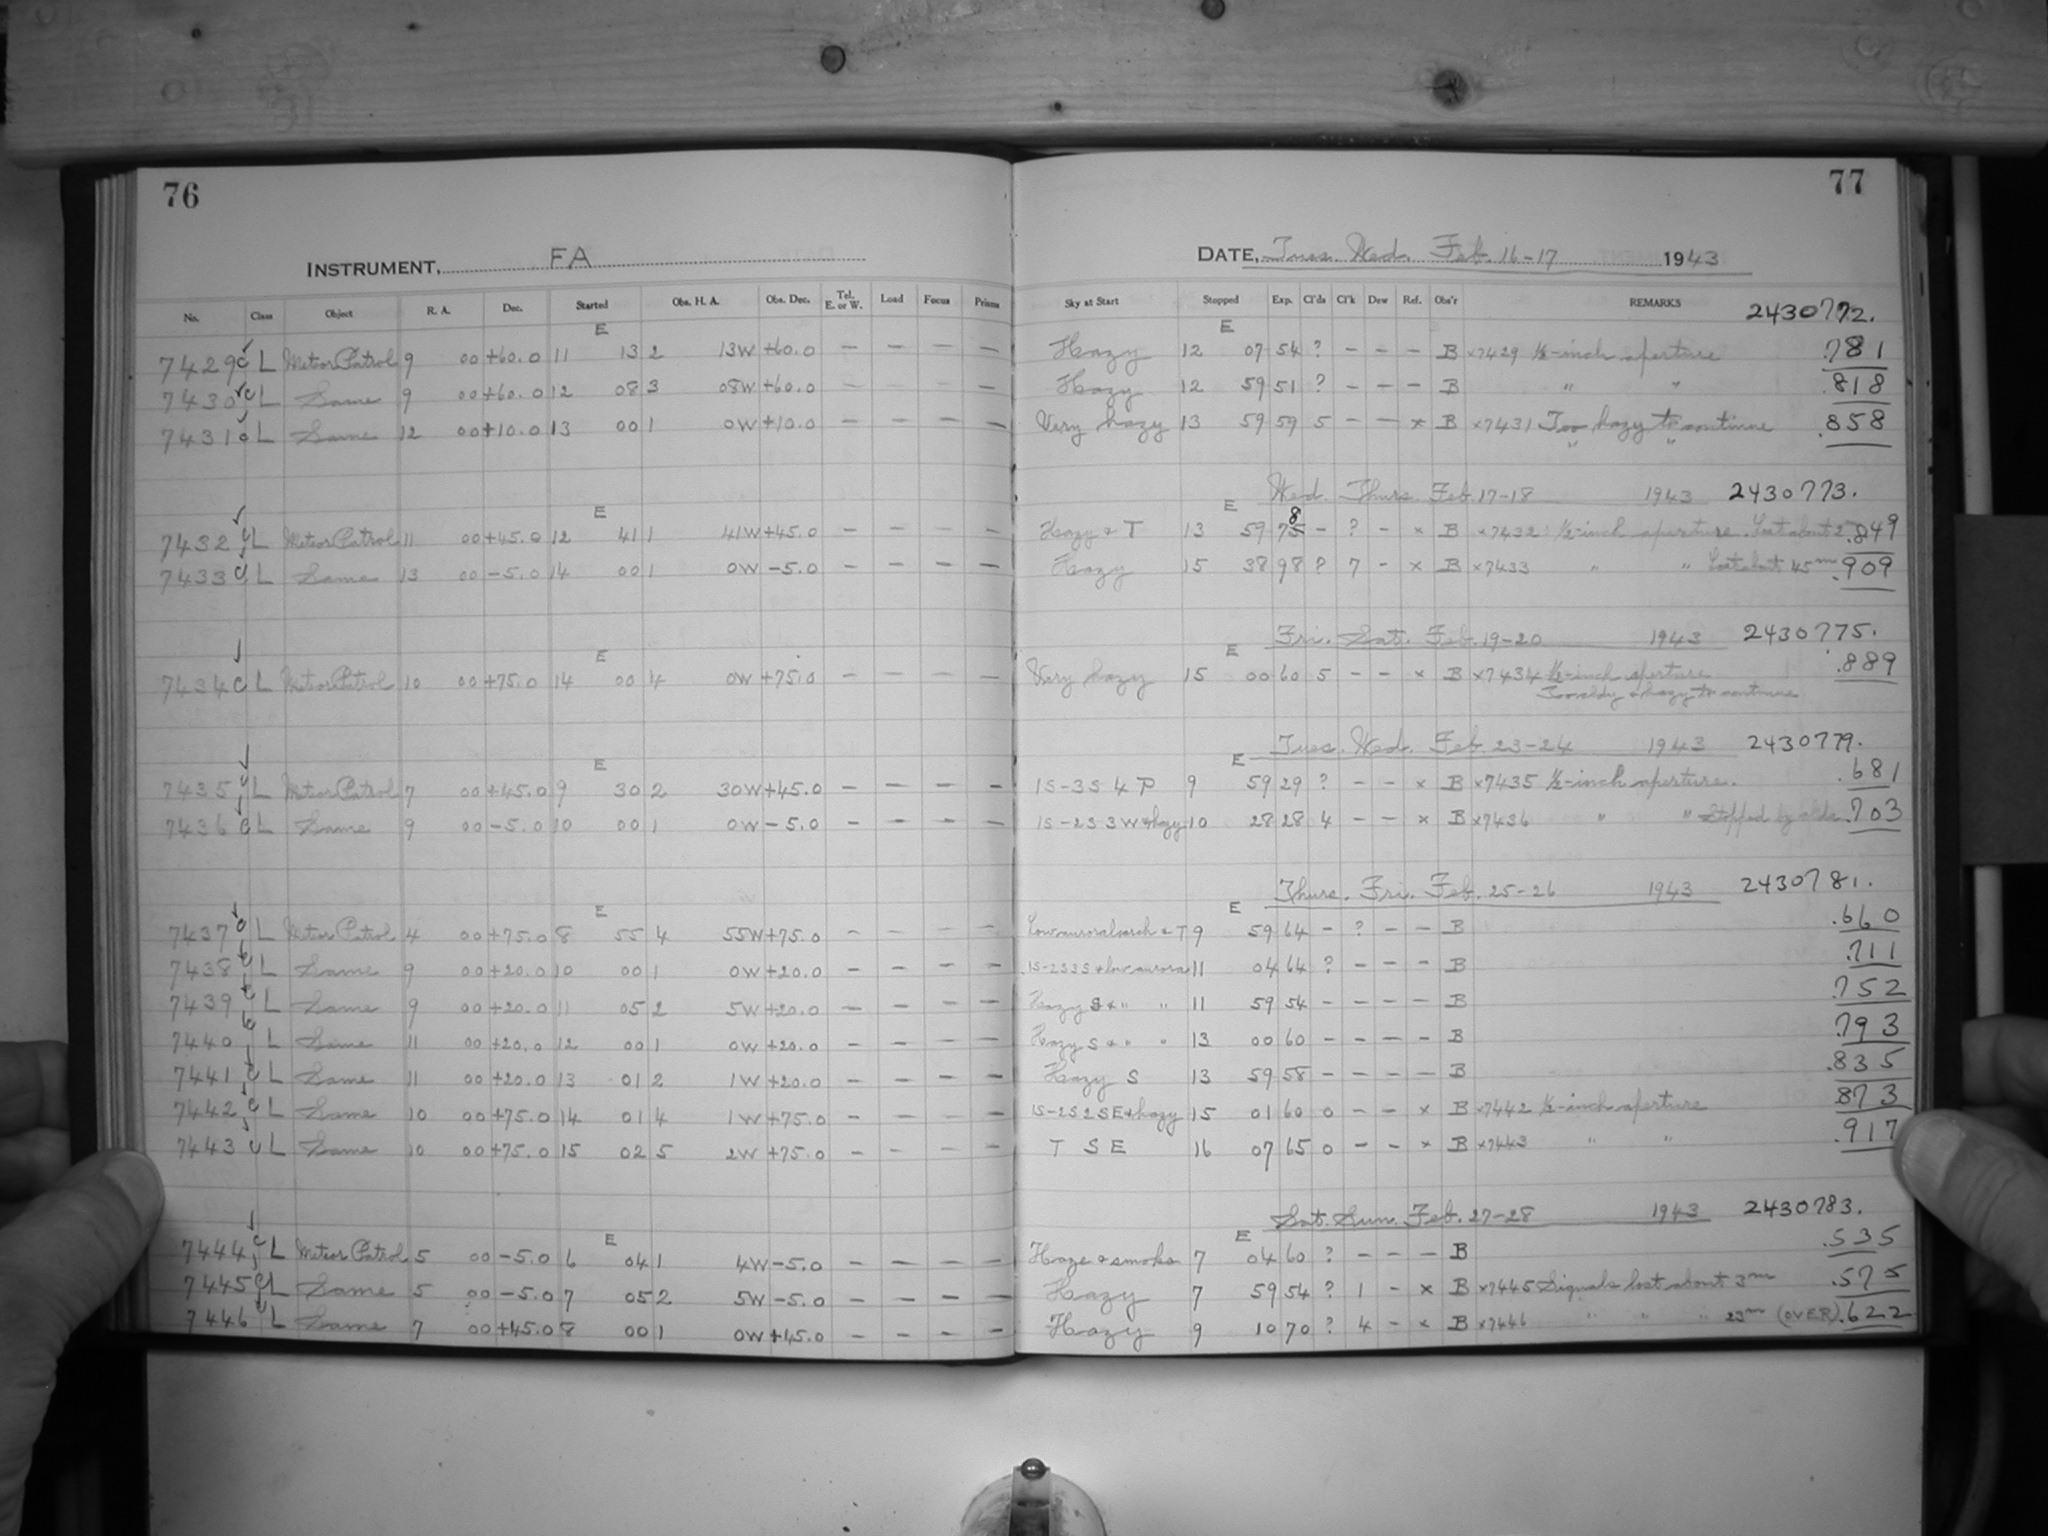 76
INSTRUMENT, FA
No. Class Object R. A. Dec. Started Obs. H. A. Obs. Dec. Tel. E. or W. Load Focus Prisms
E
7429 c L Meteor Patrol 9 00 +60.0 11 13 2 13W +60.0 — — — —
7430 c L Same 9 00 +60.0 12 08 3 08W +60.0 — — — —
7431 c L Same 12 00 +10.0 13 00 1 0W +10.0 — — — —
E
7432 c L Meteor Patrol 11 00 +45.0 12 41 1 41W +45.0 — — — —
7433 c L Same 13 00 -5.0 14 00 1 0W -5.0 — — — —
E
7434 c L Meteor Patrol 10 00 +75.0 14 00 4 0W +75.0 — — — —
E
7435 c L Meteor Patrol 7 00 +45.0 9 30 2 30W +45.0 — — — —
7436 c L Same 9 00 -5.0 10 00 1 0W -5.0 — — — —
E
7437 c L Meteor Patrol 4 00 +75.0 8 55 4 55W +75.0 — — — —
7438 c L Same 9 00 +20.0 10 00 1 0W +20.0 — — — —
7439 c L Same 9 00 +20.0 11 05 2 5W +20.0 — — — —
7440 c L Same 11 00 +20.0 12 00 1 0W +20.0 — — — —
7441 c L Same 11 00 +20.0 13 01 2 1W +20.0 — — — —
7442 c L Same 10 00 +75.0 14 01 4 1W +75.0 — — — —
7443 c L Same 10 00 +75.0 15 02 5 2W +75.0 — — — —
E
7444 c L Meteor Patrol 5 00 -5.0 6 04 1 4W -5.0 — — — —
7445 c L Same 5 00 -5.0 7 05 2 5W -5.0 — — — —
7446 c L Same 7 00 +45.0 8 00 1 0W +45.0 — — — —
77
DATE, Tues. Wed. Feb. 16-17 1943
Sky at Start Stopped Exp. Cl'ds Cl'k Dew Ref. Obs'r REMARKS 2430772.
E
Hazy 12 07 54 ? — — — B x7429 ½-inch aperture .781
Hazy 12 59 51 ? — — — B " " .818
Very hazy 13 59 59 5 — — x B x7431 Too hazy to continue .858
" "
Wed. Thurs. Feb. 17-18 1943 2430773.
E 8
Hazy & T 13 59 75 — ? — x B x7432 ½-inch aperture. Lost about 2m .849
Hazy 15 38 98 ? 7 — x B x7433 " " Lost about 45m .909
Fri. Sat. Feb. 19-20 1943 2430775.
E
Very hazy 15 00 60 5 — — x B x7434 ½-inch aperture .889
Too cldy & hazy to continue
Tues. Wed. Feb 23-24 1943 2430779.
E
1S-3S 4 P 9 59 29 ? — — x B x7435 ½-inch aperture. .681
1S-2S 3 W & hazy 10 28 28 4 — — x B x7436 " " Stopped by clds. .703
Thurs. Fri. Feb. 25-26 1943 2430781.
E
Low auroral arch & T 9 59 64 — ? — — B .660
1S-2S 3 S & low aurora 11 04 64 ? — — — B .711
Hazy S & " " 11 59 54 — — — — B .752
Hazy S & " " 13 00 60 — — — — B .793
Hazy S 13 59 58 — — — — B .835
1S-2S 2 SE & hazy 15 01 60 0 — — x B x7442 ½-inch aperture .873
T S E 16 07 65 0 — — x B x7443 " " .917
Sat. Sun. Feb. 27-28 1943 2430783.
E
Haze & smoke 7 04 60 ? — — — B .535
Hazy 7 59 54 ? 1 — x B x7445 Signals lost about 3m .575
Hazy 9 10 70 ? 4 — x B x7446 " " " 23m (OVER) .622